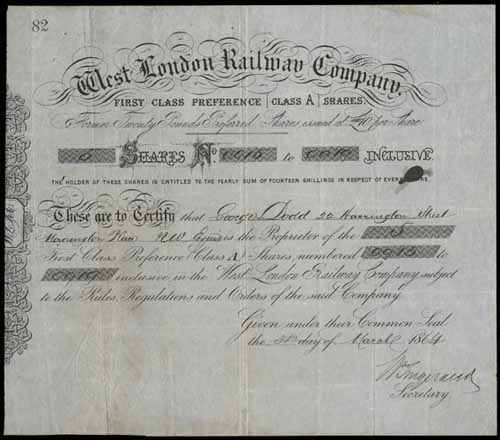 82
West London Railway Company.
FIRST CLASS PREFERENCE (CLASS A) SHARES.
Former Twenty Pounds Preferred Shares issued at £10 per Share
5 SHARES No to INCLUSIVE
THE HOLDER OF THESE SHARES IS ENTITLED TO THE YEARLY SUM OF FOURTEEN SHILLINGS IN RESPECT OF EVERY SHARE.
These are to Certify that George Dodd 20 Harrington Street
NW Esquire is the Proprietor of the 5
First Class Preference (Class A) Shares numbered to
inclusive in the West London Railway Company subject
to the Rules, Regulations and Orders of the said Company
Given under their Common Seal
the day of March 1864
Secretary.